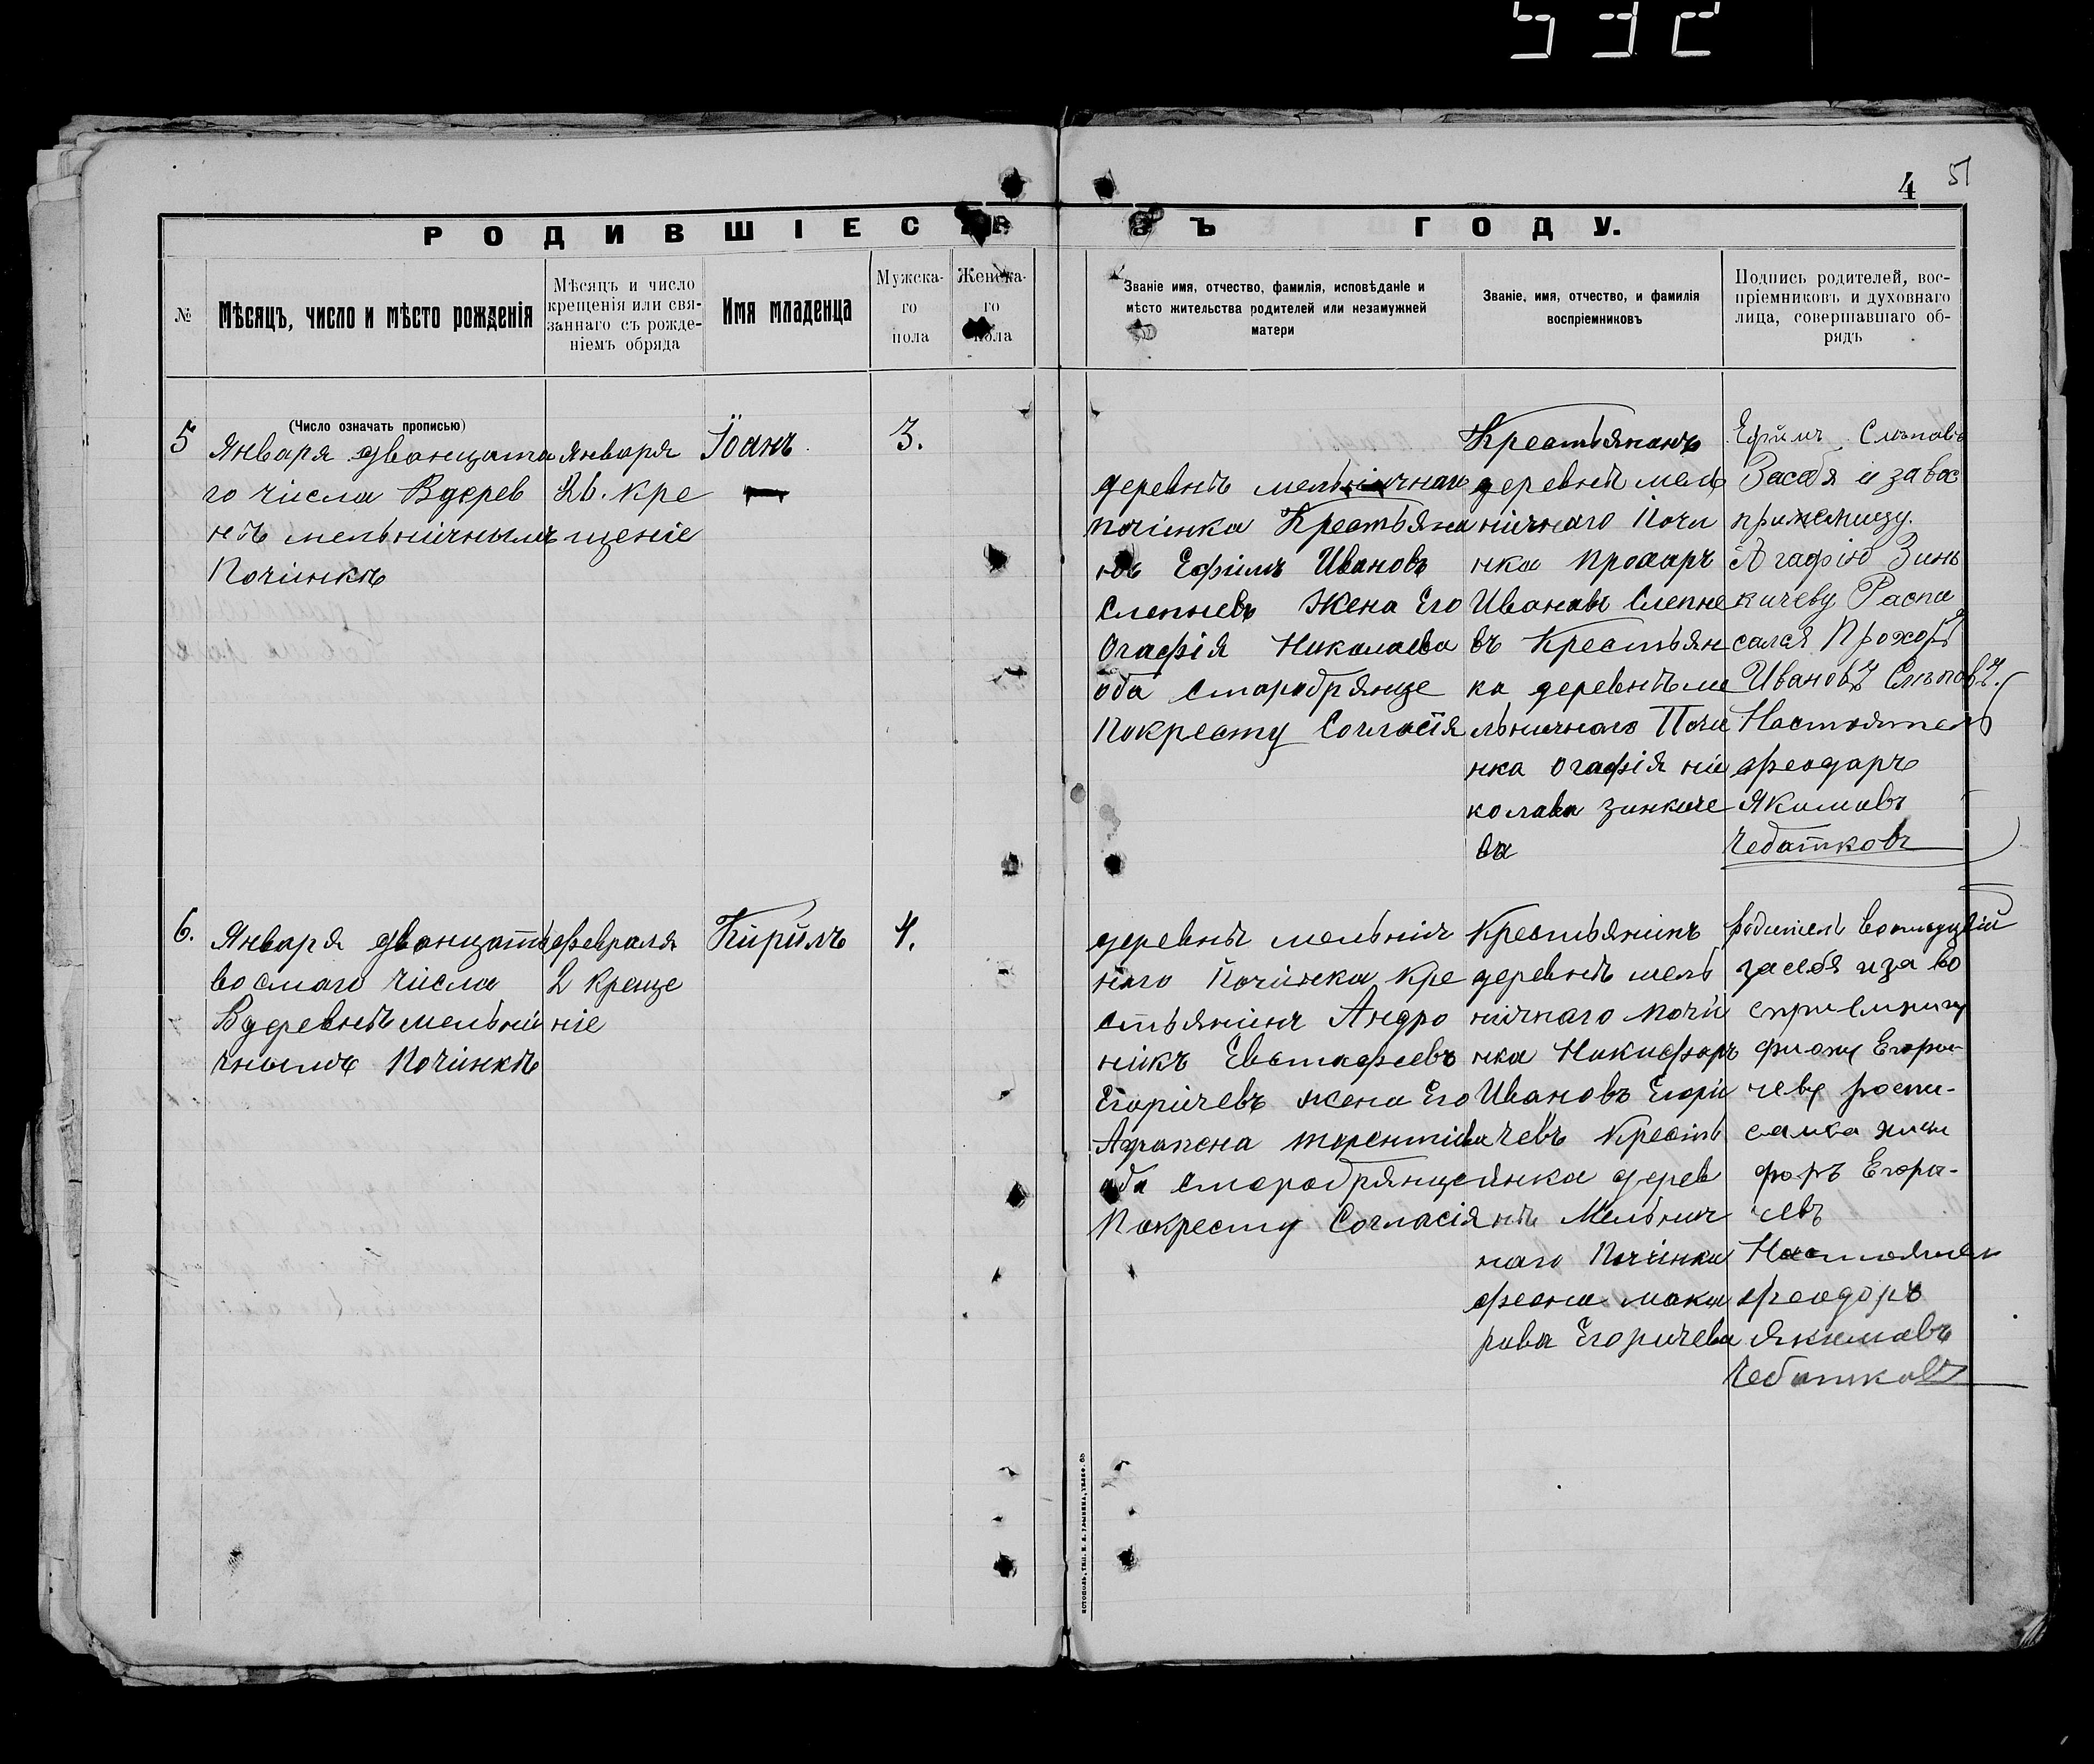 532
4 51
РОДИВШІЕС ВЪ ГОДУ.
№
Мѣсяцъ, число и мѣсто рожденія
Мѣсяцъ и число
крещенія или свя-
заннаго съ рожде-
ніемъ обряда
Имя младенца
Мужска-
го
пола
Женска-
го
пола
Званіе имя, отчество, фамилія, исповѣданіе и
мѣсто жительства родителей или незамужней
матери
Званіе, имя, отчество, и фамилія
воспріемниковъ
Подпись родителей, вос-
пріемниковъ и духовнаго
лица, совершавшаго об-
рядъ
(Число означать прописью)
5
Января дванцата
го числа Вдерев
нѣ мельничнымъ
Починкѣ
января
26. кре
щеніе
Іоанъ
3.
деревнѣ мельничнаи
починка Крестьяни
нъ Ефимъ Ивановъ
Слепневъ Жена Его
Огафія Николаева
оба старобрянце
Покресту Согласія
Крестьянанъ
деревнѣ мель
ничнаго Почи
нка прохаръ
Ивановъ Слепне
въ Крестьян
ка деревнѣ ме
льничнаго Почи
нка огафія ни
колава зинкиче
ва
Ефимъ Слѣповъ
Засебя и за вос
приемницу.
Агафію Зинь
кичеву Распи
салса Прохоръ
Ивановъ Слѣповъ.
Настоятель
феодаръ
Якимавъ
Чебатковъ
6.
Января дванцать
восмаго числа
Вдеревнѣ мельни
чнымъ Починкѣ
февраля
2 креще
ніе
Кирилъ
4.
деревны мельнич
наго Починка кре
стьянинъ Андро
никъ Евстафиевъ
Егоричевъ жена Его
Аграпена терентива
оба старобрянце
Покресту Согласія
Крестьянинъ
деревнѣ мель
ничнаго почи
нка Никифоръ
Ивановъ Егори
чевъ Кресть
янка дерев
нѣ Мельнич
наго Починка
феона мака
рава Егоричева
родитель
засебя иза во
сприемницу
фиону Егори
чеву роспи-
салса ники
форъ Егори-
чевъ
Настоятель
феодоръ
Якимавъ
Чебатковъ